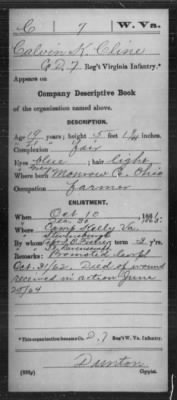 C 7 W. Va.
Calvin K. Cline
C. D. 7 Reg't Virginia Infantry.*
Appears on
Company Descriptive Book
of the organization named above.
DESCRIPTION.
Age 19 years; height 5 feet inches.
Complexion fair
Eyes blue ; hair light
Where born Monroe Co. Ohio
Occupation Farmer
ENLISTMENT.
When Oct 10 , 186
Where Camp Kelly Va.
By whom term 3 y'rs.
Remarks: Promoted Corpl
Oct. 31/62. Died of wound
received in action June
/64
*This organization became Co. D, 7 Reg't W. Va. Infantry.
Dunton
(339g) Copyist.